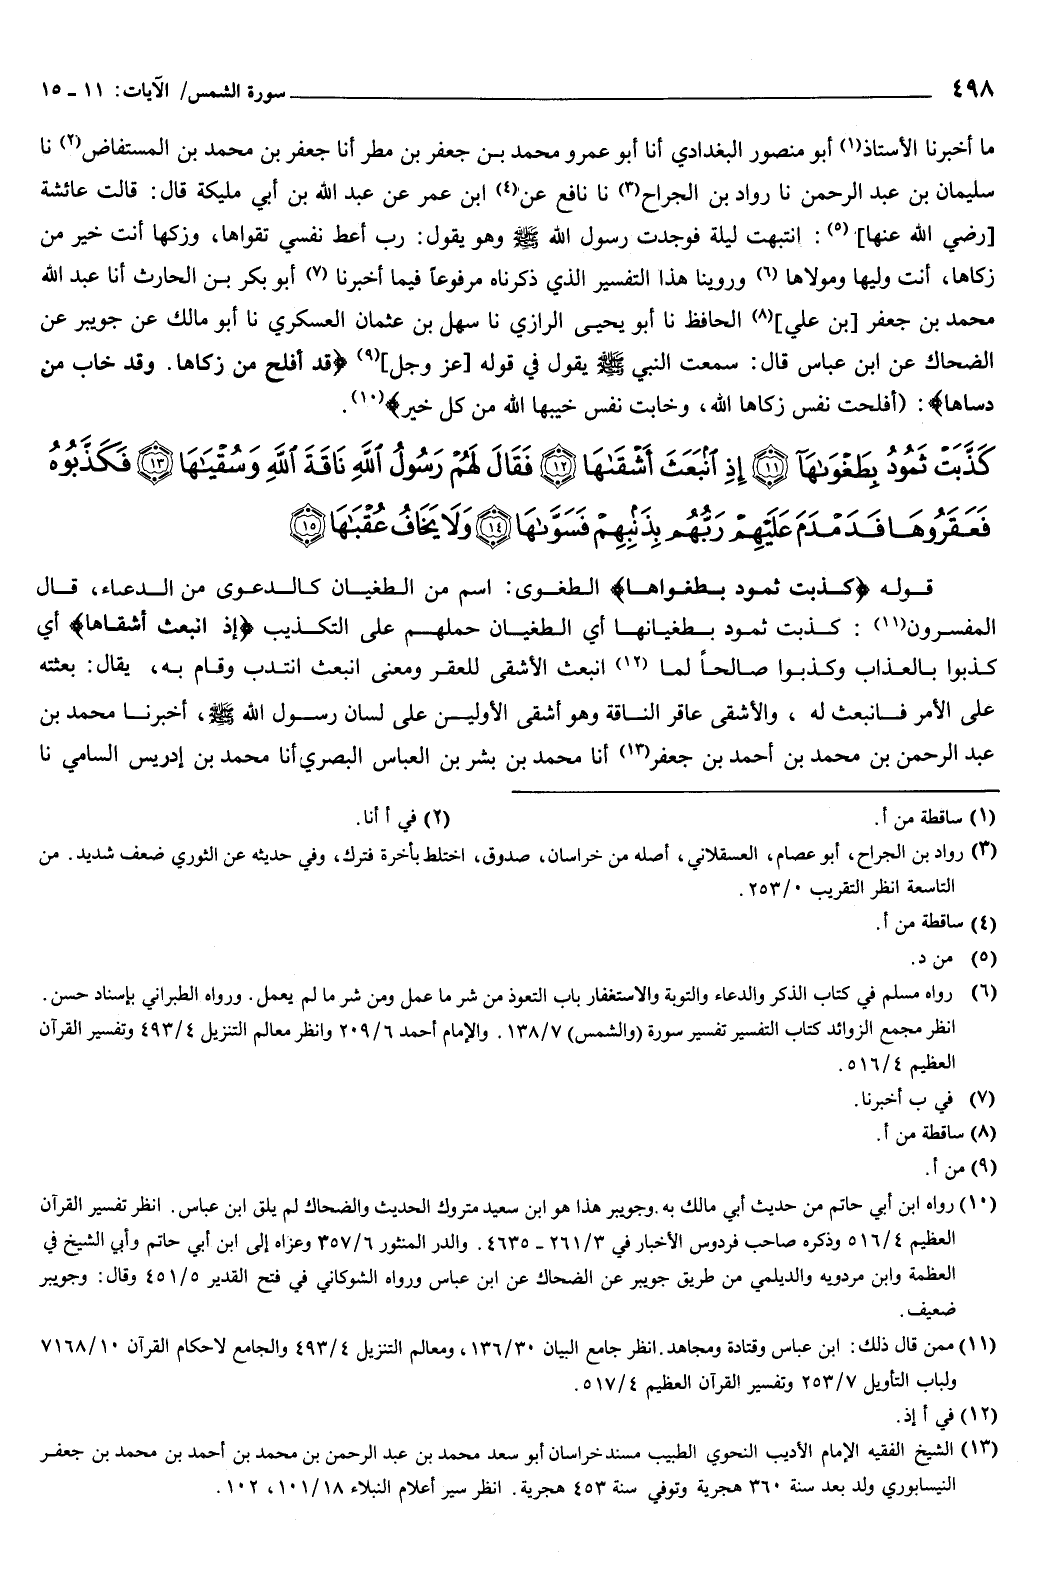 ٤٩٨ سورة الشمس/ الآيات: ١١ ـ ١٥
ما أخبرنا الأستاذ(١) أبو منصور البغدادي أنا أبو عمرو محمد بن جعفر بن مطر أنا جعفر بن محمد بن المستفاض(٢) نا
سليمان بن عبد الرحمن نا رواد بن الجراح(٣) نا نافع عن(٤) ابن عمر عن عبد الله بن أبي مليكة قال: قالت عائشة
[رضي الله عنها] (٥): انتبهت ليلة فوجدت رسول الله ﷺ وهو يقول: رب أعط نفسي تقواها، وزكها أنت خير من
زكاها، أنت وليها ومولاها (٦) وروينا هذا التفسير الذي ذكرناه مرفوعاً فيما أخبرنا (٧) أبو بكر بن الحارث أنا عبد الله
محمد بن جعفر [بن علي](٨) الحافظ نا أبو يحيى الرازي نا سهل بن عثمان العسكري نا أبو مالك عن جويبر عن
الضحاك عن ابن عباس قال: سمعت النبي ﷺ يقول في قوله [عز وجل](٩) ﴿قد أفلح من زكاها. وقد خاب من
دساها﴾: (أفلحت نفس زكاها الله، وخابت نفس خيبها الله من كل خير﴾(١٠).
كَذَّبَتْ ثَمُودُ بِطَغْوَىٰهَآ ﴿١١﴾ إِذِ ٱنۢبَعَثَ أَشْقَىٰهَا ﴿١٢﴾ فَقَالَ لَهُمْ رَسُولُ ٱللَّهِ نَاقَةَ ٱللَّهِ وَسُقْيَـٰهَا ﴿١٣﴾ فَكَذَّبُوهُ
فَعَقَرُوهَا فَدَمْدَمَ عَلَيْهِمْ رَبُّهُم بِذَنۢبِهِمْ فَسَوَّىٰهَا ﴿١٤﴾ وَلَا يَخَافُ عُقْبَـٰهَا ﴿١٥﴾
قوله ﴿كذبت ثمود بطغواها﴾ الطغوى: اسم من الطغيان كالدعوى من الدعاء، قال
المفسرون(١١) : كذبت ثمود بطغيانها أي الطغيان حملهم على التكذيب ﴿إذ انبعث أشقاها﴾ أي
كذبوا بالعذاب وكذبوا صالحاً لما (١٢) انبعث الأشقى للعقر ومعنى انبعث انتدب وقام به، يقال: بعثته
على الأمر فانبعث له ، والأشقى عاقر الناقة وهو أشقى الأولين على لسان رسول الله ﷺ، أخبرنا محمد بن
عبد الرحمن بن محمد بن أحمد بن جعفر(١٣) أنا محمد بن بشر بن العباس البصري أنا محمد بن إدريس السامي نا
(١) ساقطة من أ. (٢) في أ أنا.
(٣) رواد بن الجراح، أبو عصام، العسقلاني، أصله من خراسان، صدوق، اختلط بأخرة فترك، وفي حديثه عن الثوري ضعف شديد. من
التاسعة انظر التقريب ٢٥٣/٠.
(٤) ساقطة من أ.
(٥) من د.
(٦) رواه مسلم في كتاب الذكر والدعاء والتوبة والاستغفار باب التعوذ من شر ما عمل ومن شر ما لم يعمل. ورواه الطبراني بإسناد حسن.
انظر مجمع الزوائد كتاب التفسير تفسير سورة (والشمس) ١٣٨/٧. والإمام أحمد ٢٠٩/٦ وانظر معالم التنزيل ٤٩٣/٤ وتفسير القرآن
العظيم ٥١٦/٤.
(٧) في ب أخبرنا.
(٨) ساقطة من أ.
(٩) من أ.
(١٠) رواه ابن أبي حاتم من حديث أبي مالك به. وجويبر هذا هو ابن سعيد متروك الحديث والضحاك لم يلق ابن عباس. انظر تفسير القرآن
العظيم ٥١٦/٤ وذكره صاحب فردوس الأخبار في ٢٦١/٣ ـ ٤٦٣٥. والدر المنثور ٣٥٧/٦ وعزاه إلى ابن أبي حاتم وأبي الشيخ في
العظمة وابن مردويه والديلمي من طريق جويبر عن الضحاك عن ابن عباس ورواه الشوكاني في فتح القدير ٤٥١/٥ وقال: وجويبر
ضعيف.
(١١) ممن قال ذلك: ابن عباس وقتادة ومجاهد. انظر جامع البيان ١٣٦/٣٠، ومعالم التنزيل ٤٩٣/٤ والجامع لاحكام القرآن ٧١٦٨/١٠
ولباب التأويل ٢٥٣/٧ وتفسير القرآن العظيم ٥١٧/٤.
(١٢) في أ إذ.
(١٣) الشيخ الفقيه الإمام الأديب النحوي الطبيب مسند خراسان أبو سعد محمد بن عبد الرحمن بن محمد بن أحمد بن محمد بن جعفر
النيسابوري ولد بعد سنة ٣٦٠ هجرية وتوفي سنة ٤٥٣ هجرية. انظر سير أعلام النبلاء ١٠١/١٨، ١٠٢.